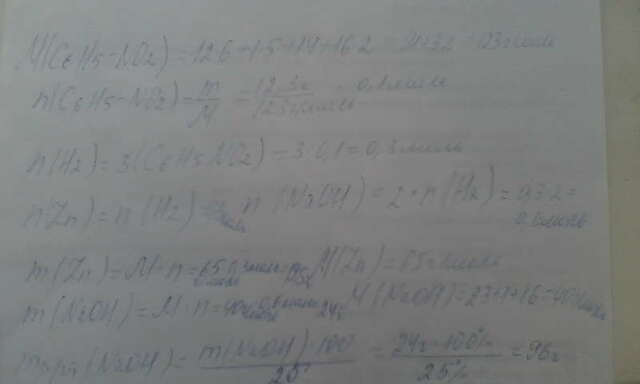 M(C6H5-NO2)=12·6+1·5+14+16·2 = 123г/моль
n(C6H5-NO2)=m/M = 12,3г/123г/моль = 0,1моль
n(H2)=3(C6H5NO2)=3·0,1=0,3моль
n(Zn)=n(H2) n(NaOH)=2·n(H2)=0,3·2= 0,6моль
m(Zn)=M·n=65 M(Zn)=65г/моль
m(NaOH)=M·n=40 0,6моль 24г M(NaOH)=23+1+16=40г/моль
mр-ра(NaOH)=m(NaOH)·100/25% = 24г·100%/25% =96г